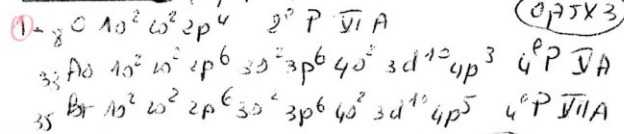 0,75 x 3
1- ₈O 1s² 2s² 2p⁴ 2º P VI A
₃₃As 1s² 2s² 2p⁶ 3s² 3p⁶ 4s² 3d¹⁰ 4p³ 4º P V A
₃₅Br 1s² 2s² 2p⁶ 3s² 3p⁶ 4s² 3d¹⁰ 4p⁵ 4º P VII A